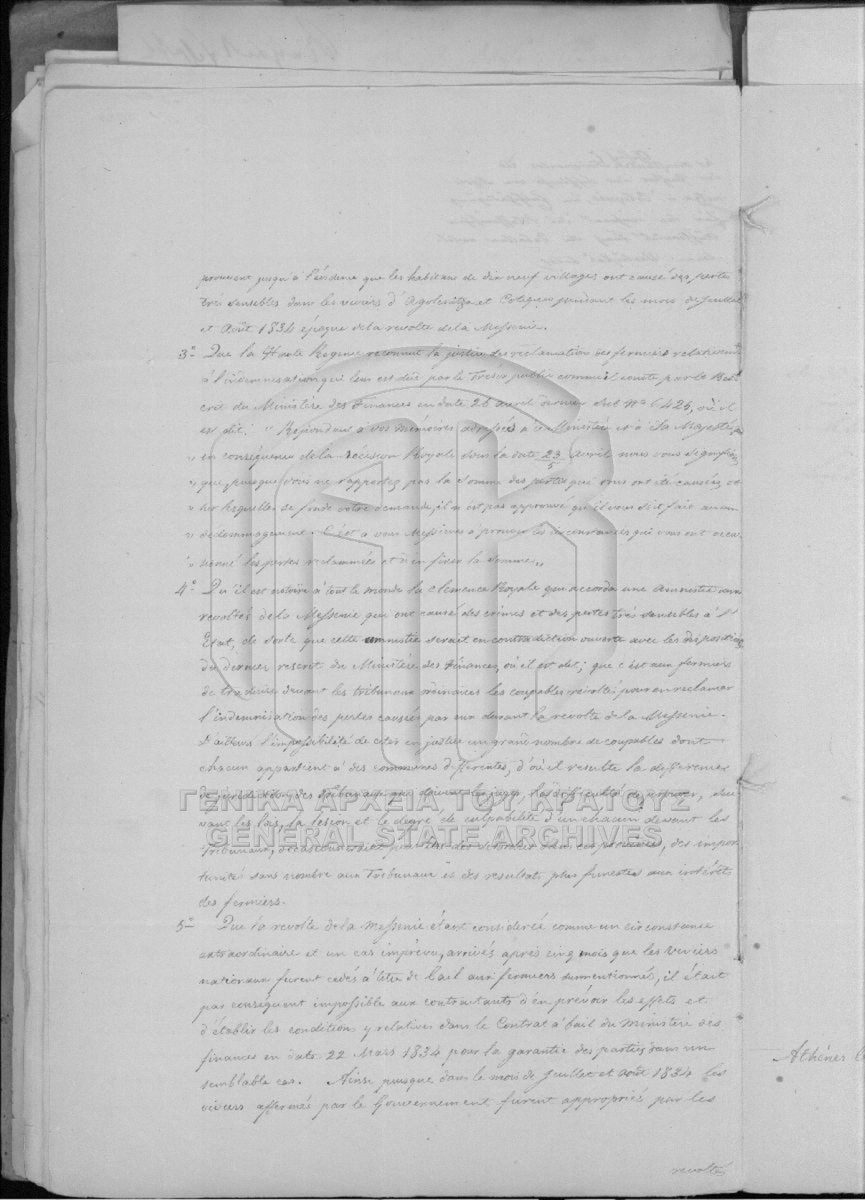 prouvent jusqu'à l'évidence que les habitans de dix neuf villages ont causé des pertes
très sensibles dans les viviers d'Agolenitza et Cotegan pendant les mois de Juillet
et Août 1834 époque de la revolte de la Messenie.
3º Que la Haute Regence reconnut la justice des reclamation des fermiers relativement
à l'indemnisation qui leur est due par le Tresor public comme il conste par le Res-
crit du Ministère des Finances en date 25 avril dernier sub Nº 6425, où il
est dit: " Repondant à vos mémoires adressés à ce Ministère et à Sa Majesté,
" en conséquence de la décision Royale sous la date 23/5 Avril nous vous signifions,
" que, puisque vous ne rapportez pas la somme des pertes qui vous ont été causées, et
" sur lesquelles se fonde votre demande, il n'est pas approuvé qu'il vous soit fait aucun
" dedommagement. C'est à vous Messieurs à prouver les circonstances qui vous ont occa-
" sionné les pertes reclammées et d'en fixer la somme „
4º Qu'il est notoire à tout le monde la clemence Royale qui accorda une amnistie aux
revoltés de la Messenie qui ont causé des crimes et des pertes très sensibles à l'
Etat, de sorte que cette amnistie serait en contradiction ouverte avec les dispositions
du dernier rescrit du Ministère des Finances, où il est dit; que c'est aux fermiers
de traduire devant les tribunaux ordinaires les coupables révoltés pour en reclamer
l'indemnisation des pertes causées par eux durant la revolte de la Messenie.
D'ailleurs l'impossibilité de citer en justice un grand nombre de coupables dont
chacun appartient à des communes differentes, d'où il resulte la difference
de juridiction des Tribunaux qui doivent les juger, la difficulté de prouver, sui-
vant les lois, la lesion et le degré de culpabilité d'un chacun devant les
Tribunaux, occasionneraient des desordres dans ces provinces, des impor-
tunités sans nombre aux Tribunaux et des resultats plus funestes aux intérêts
des fermiers.
5º Que la revolte de la Messenie étant considerée comme un circonstance
extraordinaire et un cas imprévu, arrivés après cinq mois que les viviers
nationaux furent cedés à titre de bail aux fermiers surmentionnés, il était
par conséquent impossible aux contractants d'en prévoir les effets et
d'établir les conditions y relatives dans le Contrat à bail du Ministère des
finances en date 22 Mars 1834 pour la garantie des parties dans un
semblable cas. Ainsi puisque dans le mois de Juillet et Août 1834 les
viviers affermés par le Gouvernement furent appropriés par les
revoltés
Athènes le
ΓΕΝΙΚΑ ΑΡΧΕΙΑ ΤΟΥ ΚΡΑΤΟΥΣ
GENERAL STATE ARCHIVES